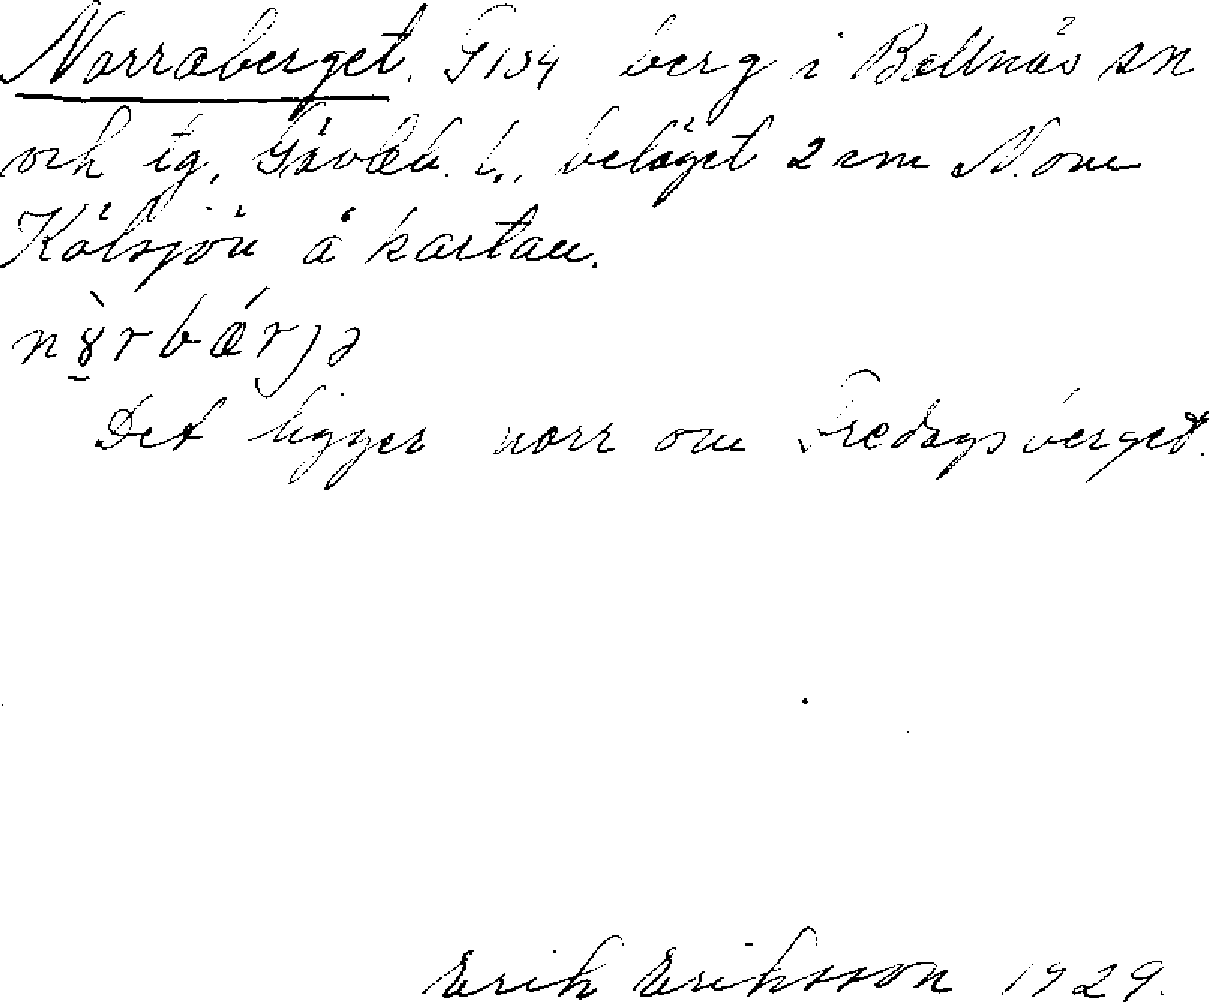 Norraberget. G 134 berg i Bollnäs sn
och tg, Gävleb. l., beläget 2 cm N. om
Kölsjön å kartan.
Det ligger norr om Fredagsberget.
Erik Eriksson 1929.